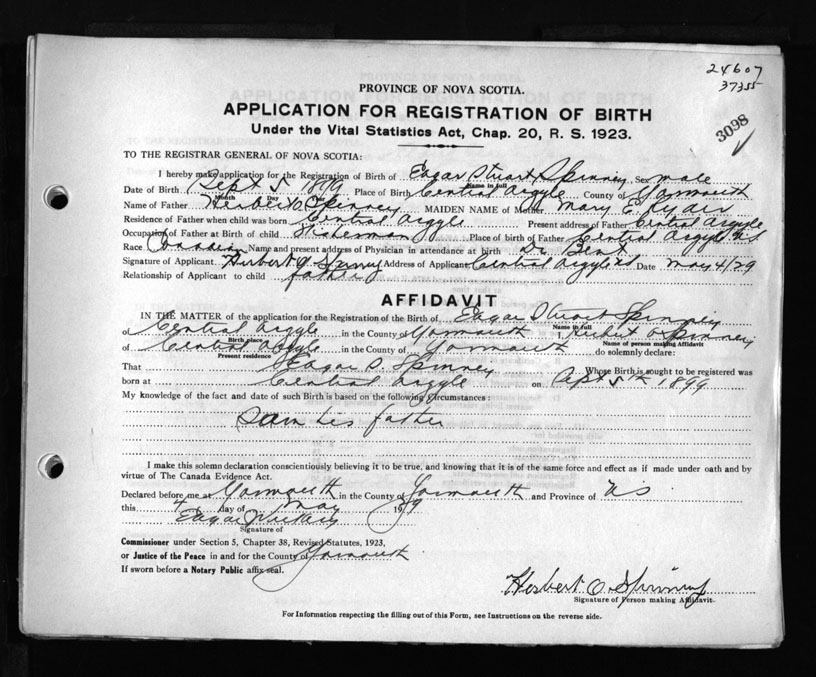 24607
37355
3098
PROVINCE OF NOVA SCOTIA.
APPLICATION FOR REGISTRATION OF BIRTH
Under the Vital Statistics Act, Chap. 20, R. S. 1923.
TO THE REGISTRAR GENERAL OF NOVA SCOTIA:
I hereby make application for the Registration of Birth of Edgar Stuart Spinney Sex male
Name in full
Date of Birth Sept 5 1899 Place of Birth Central Argyle County of Yarmouth
Month Day
Name of Father Herbert O. Spinney MAIDEN NAME of Mother Mary E.
Residence of Father when child was born Central Argyle Present address of Father Central Argyle
Occupation of Father at Birth of child Fisherman Place of birth of Father Central Argyle N S
Race Canadian Name and present address of Physician in attendance at birth Dr Bent
Signature of Applicant Herbert O Spinney Address of Applicant Central Argyle NS Date May 4/29
Relationship of Applicant to child father
AFFIDAVIT
IN THE MATTER of the application for the Registration of the Birth of Edgar Stuart Spinney
Name in full
of Central Argyle in the County of Yarmouth Herbert O Spinney
Birth place Name of person making Affidavit
of Central Argyle in the County of Yarmouth do solemnly declare:
Present residence
That Edgar S. Spinney Whose Birth is sought to be registered was
born at Central Argyle on Sept 5th 1899
My knowledge of the fact and date of such Birth is based on the following circumstances:
I am his father
I make this solemn declaration conscientiously believing it to be true, and knowing that it is of the same force and effect as if made under oath and by
virtue of The Canada Evidence Act.
Declared before me at Yarmouth in the County of Yarmouth and Province of N S
this 4 day of May 19
Edgar
Signature of
Commissioner under Section 5, Chapter 38, Revised Statutes, 1923,
or Justice of the Peace in and for the County of Yarmouth
If sworn before a Notary Public affix seal.
Herbert O. Spinney
Signature of Person making Affidavit.
For Information respecting the filling out of this Form, see Instructions on the reverse side.